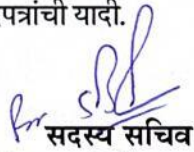 पत्रांची यादी.
सदस्य सचिव